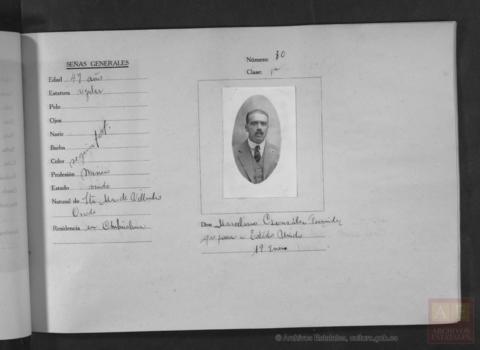 SEÑAS GENERALES
Edad 47 años
Estatura regular
Pelo
Ojos
Nariz
Barba
Color
Profesión Minero
Estado
Natural de Sta. Mª de Villandás
Oviedo
Residencia en Chihuahua
Número: 80
Clase: 1ª
Don Marcelino González
que pasa a Estados Unidos
19 Enero
© Archivos Estatales, cultura.gob.es
ARCHIVOS
ESTATALES